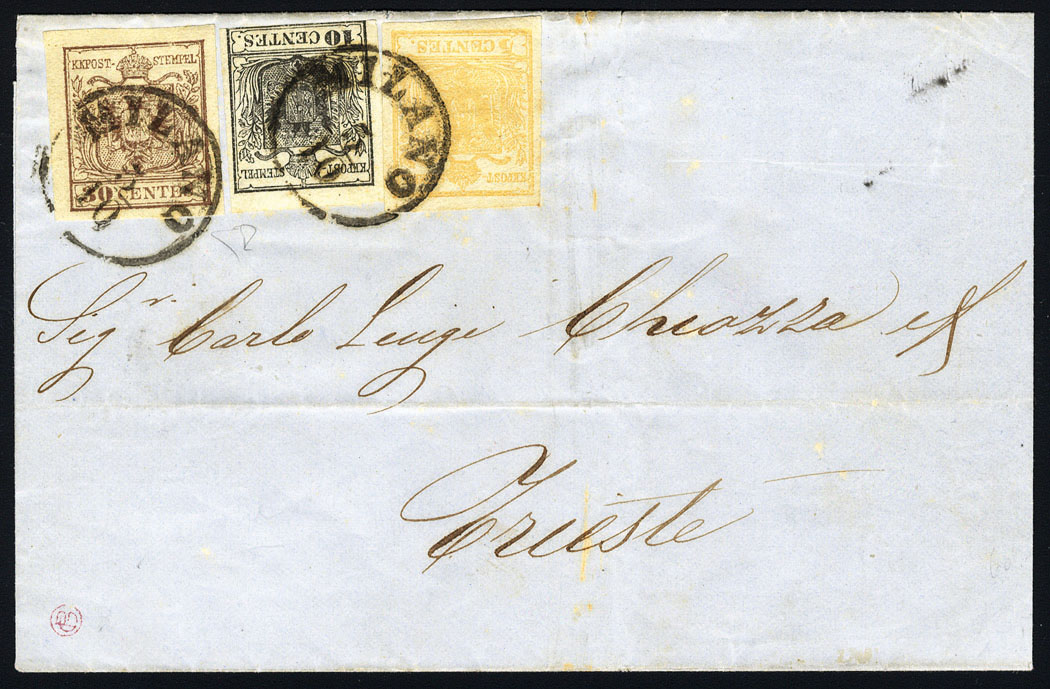 KKPOST- STEMPEL
30 CENTES
10 CENTES.
KKPOST- STEMPEL
5 CENTES.
KKPOST- STEMPEL
MILANO
MILANO
Sigri. Carlo Luigi Chiozza e f
Trieste